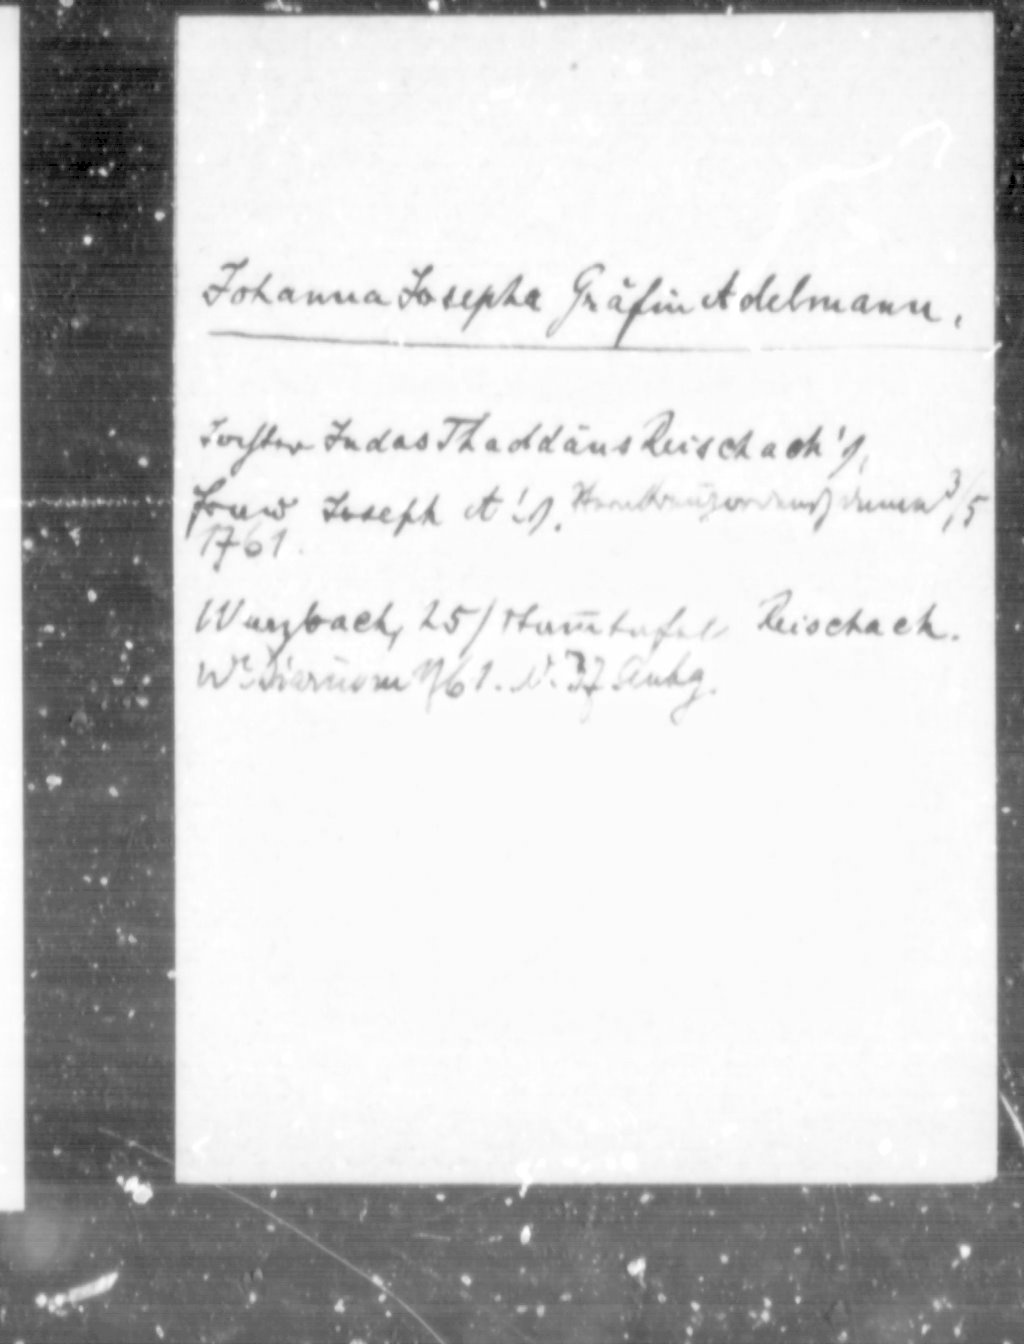 Johanna Josepha Gräfin Adelmann.
Tochter Judas Thaddäus Reischach's,
Frau Joseph A's. Sternkreuzordensdame 3/5
1761.
Wurzbach, 25/ Stammtafel Reischach.
Wr. Diarium 1761. N. 37 Anhg.